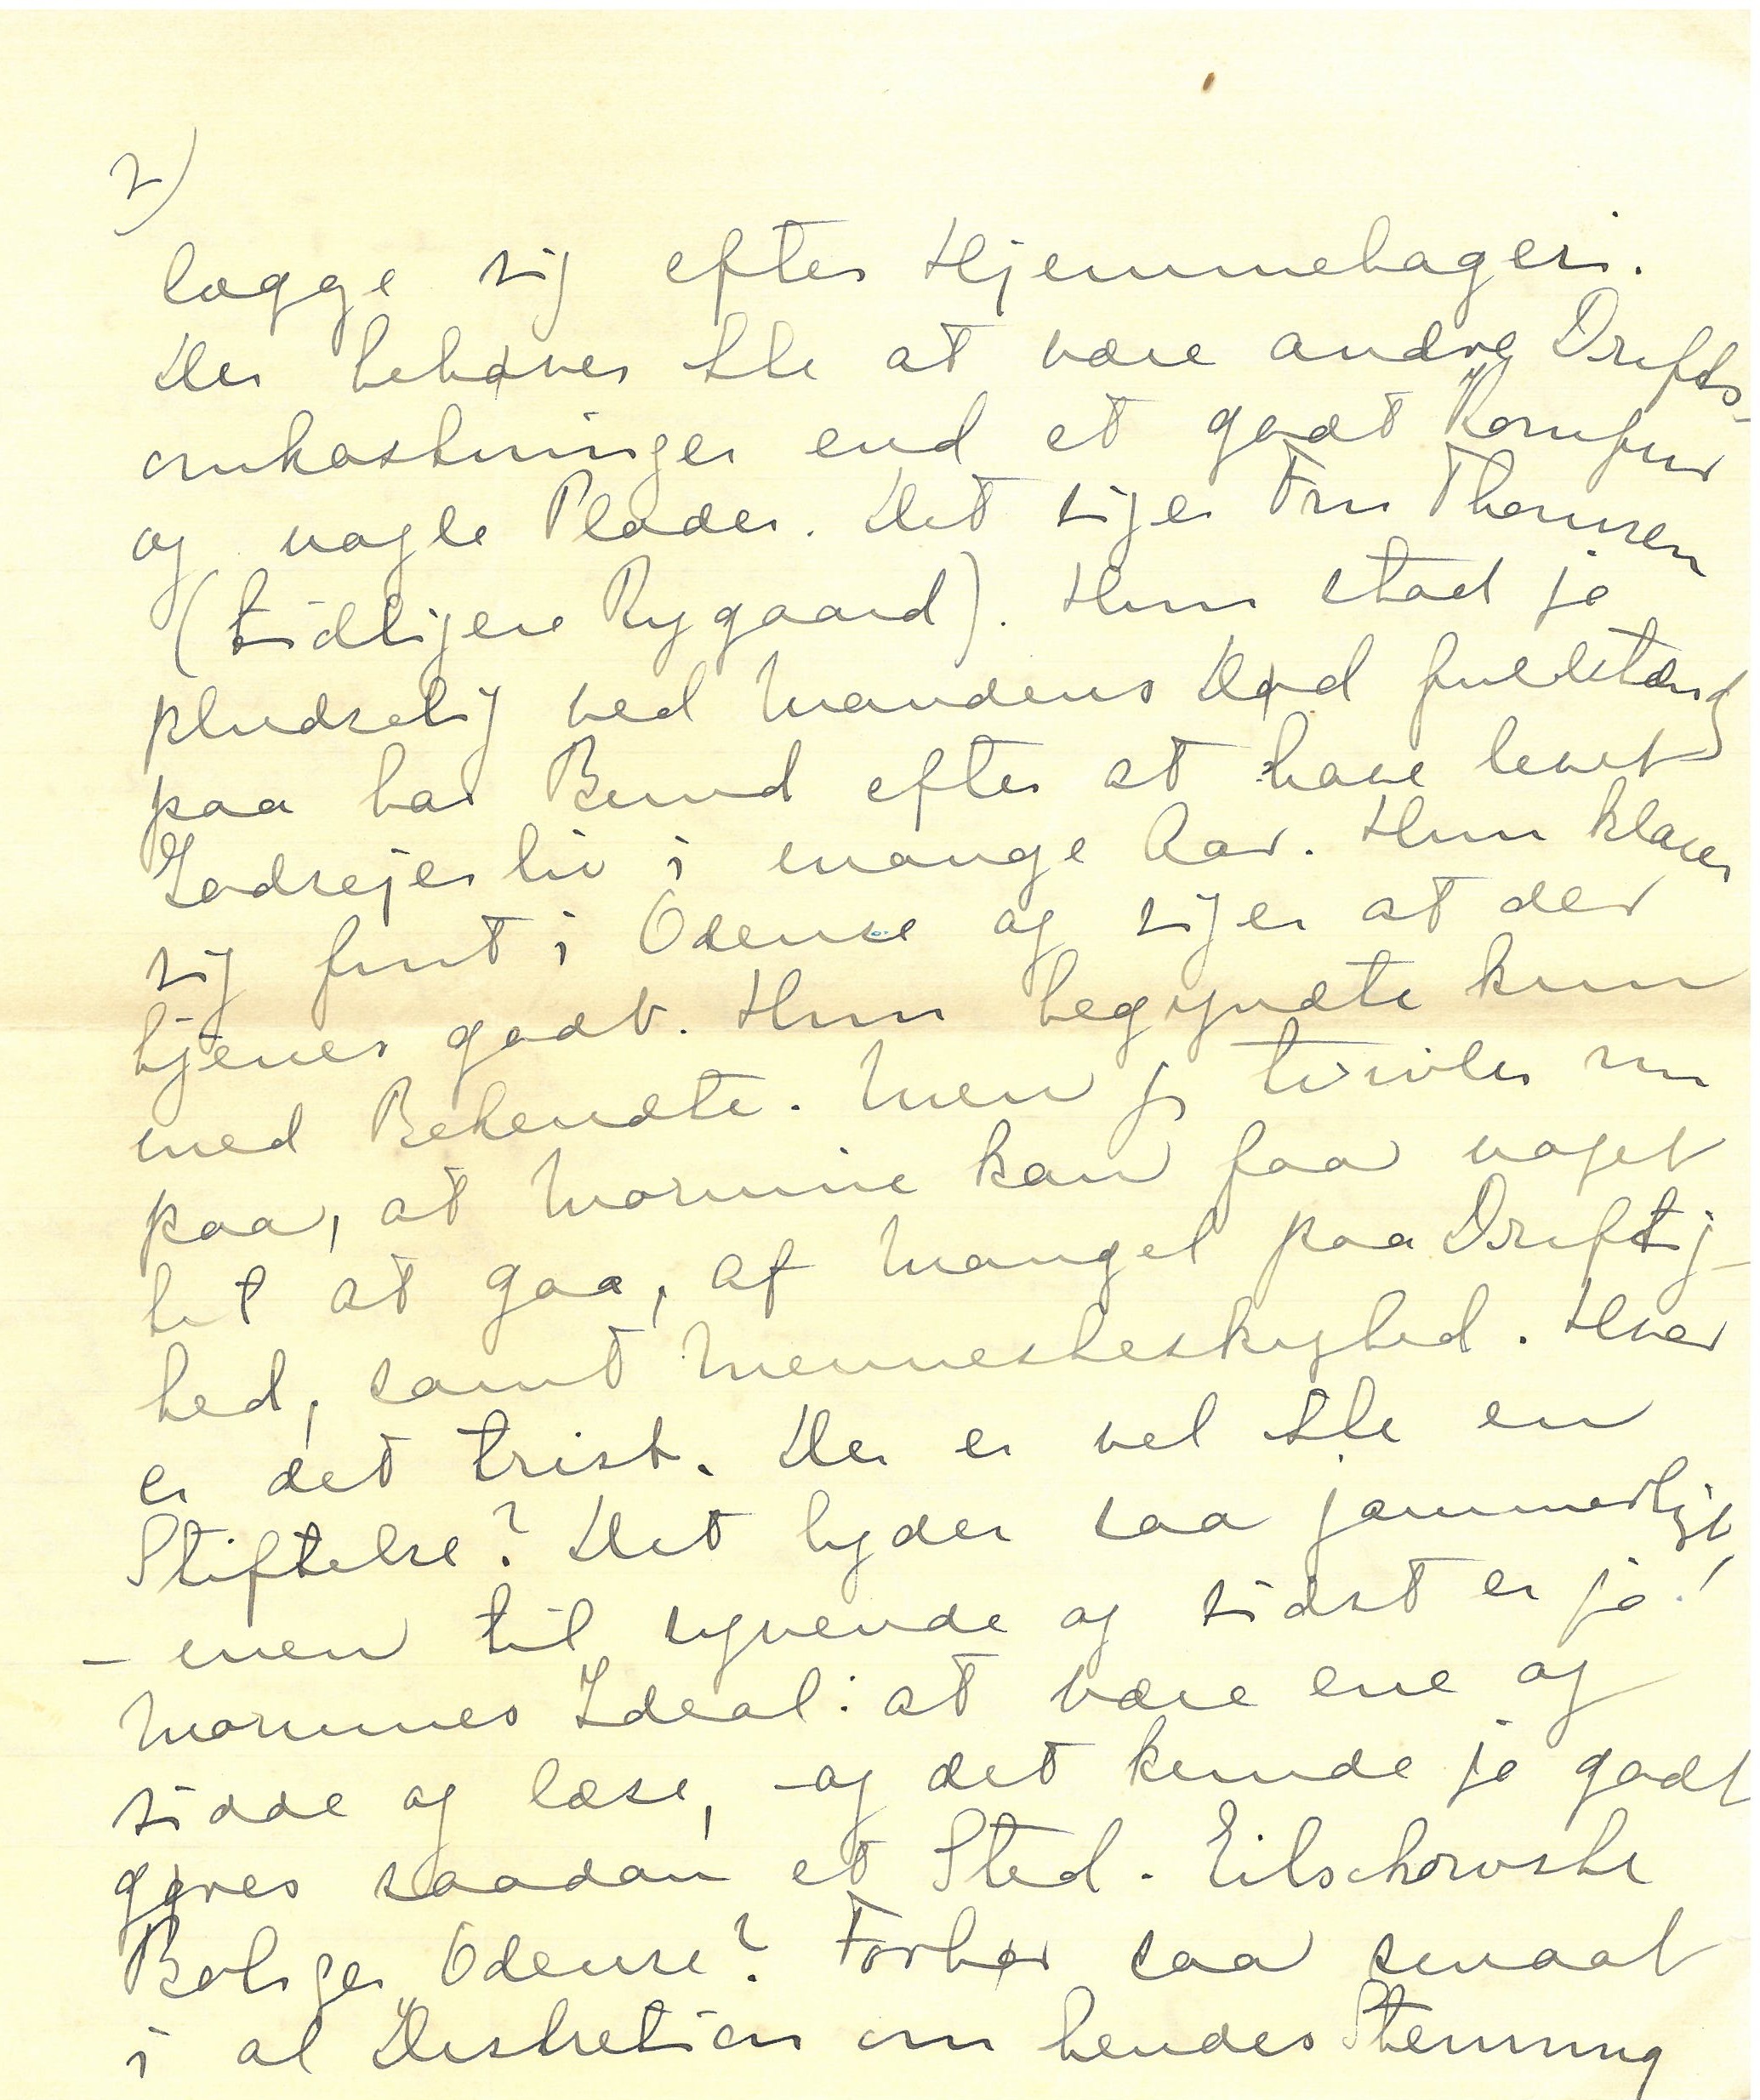 2)
lægge sig efter Hjemmebageri.
Der behøver ikke at være andre Drifts-
omkostninger end et godt Komfur
og nogle Plader. Det siger Fru Thomsen
(tidligere Rygaard). Hun stod jo
pludselig ved Mandens Død fuldstændig
paa bar Bund efter at have levet
Godsejerliv i mange Aar. Hun klarer
sig fint i Odense og siger at der
tjenes godt. Hun begyndte kun
med Bekendte. Men jg tvivler nu
paa, at Mornine kan faa noget
til at gaa, af Mangel paa Driftig-
hed, samt Menneskeskyhed. Hvor
er det trist. Der er vel ikke en
Stiftelse? Det lyder saa jammerligt
- men til syvende og sidst er jo!
Mornines Ideal: at være ene og
sidde og læse, - og det kunde jo godt
gøres saadan et Sted. Eilschowske
Boliger, Odense? Forhør saa smaat
i al Diskretion om hendes Stemning